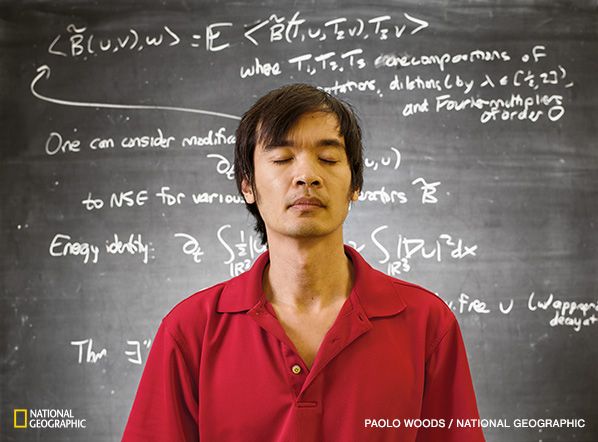 <B̃(u,v),w> = E <B̃(T₁u,T₂v),T₃v>
where T₁,T₂,T₃ are compositions of
rotations, dilations (by λ ∈ [½,2]),
and Fourier multipliers
of order 0
One can consider
∂t u,v)
to NSE for B̃
Energy identity: ∂t ∫ ½| ∫ |∇u|²dx
|R³ |R³
free u (w/
decay at
Thm ∃
NATIONAL
GEOGRAPHIC
PAOLO WOODS / NATIONAL GEOGRAPHIC